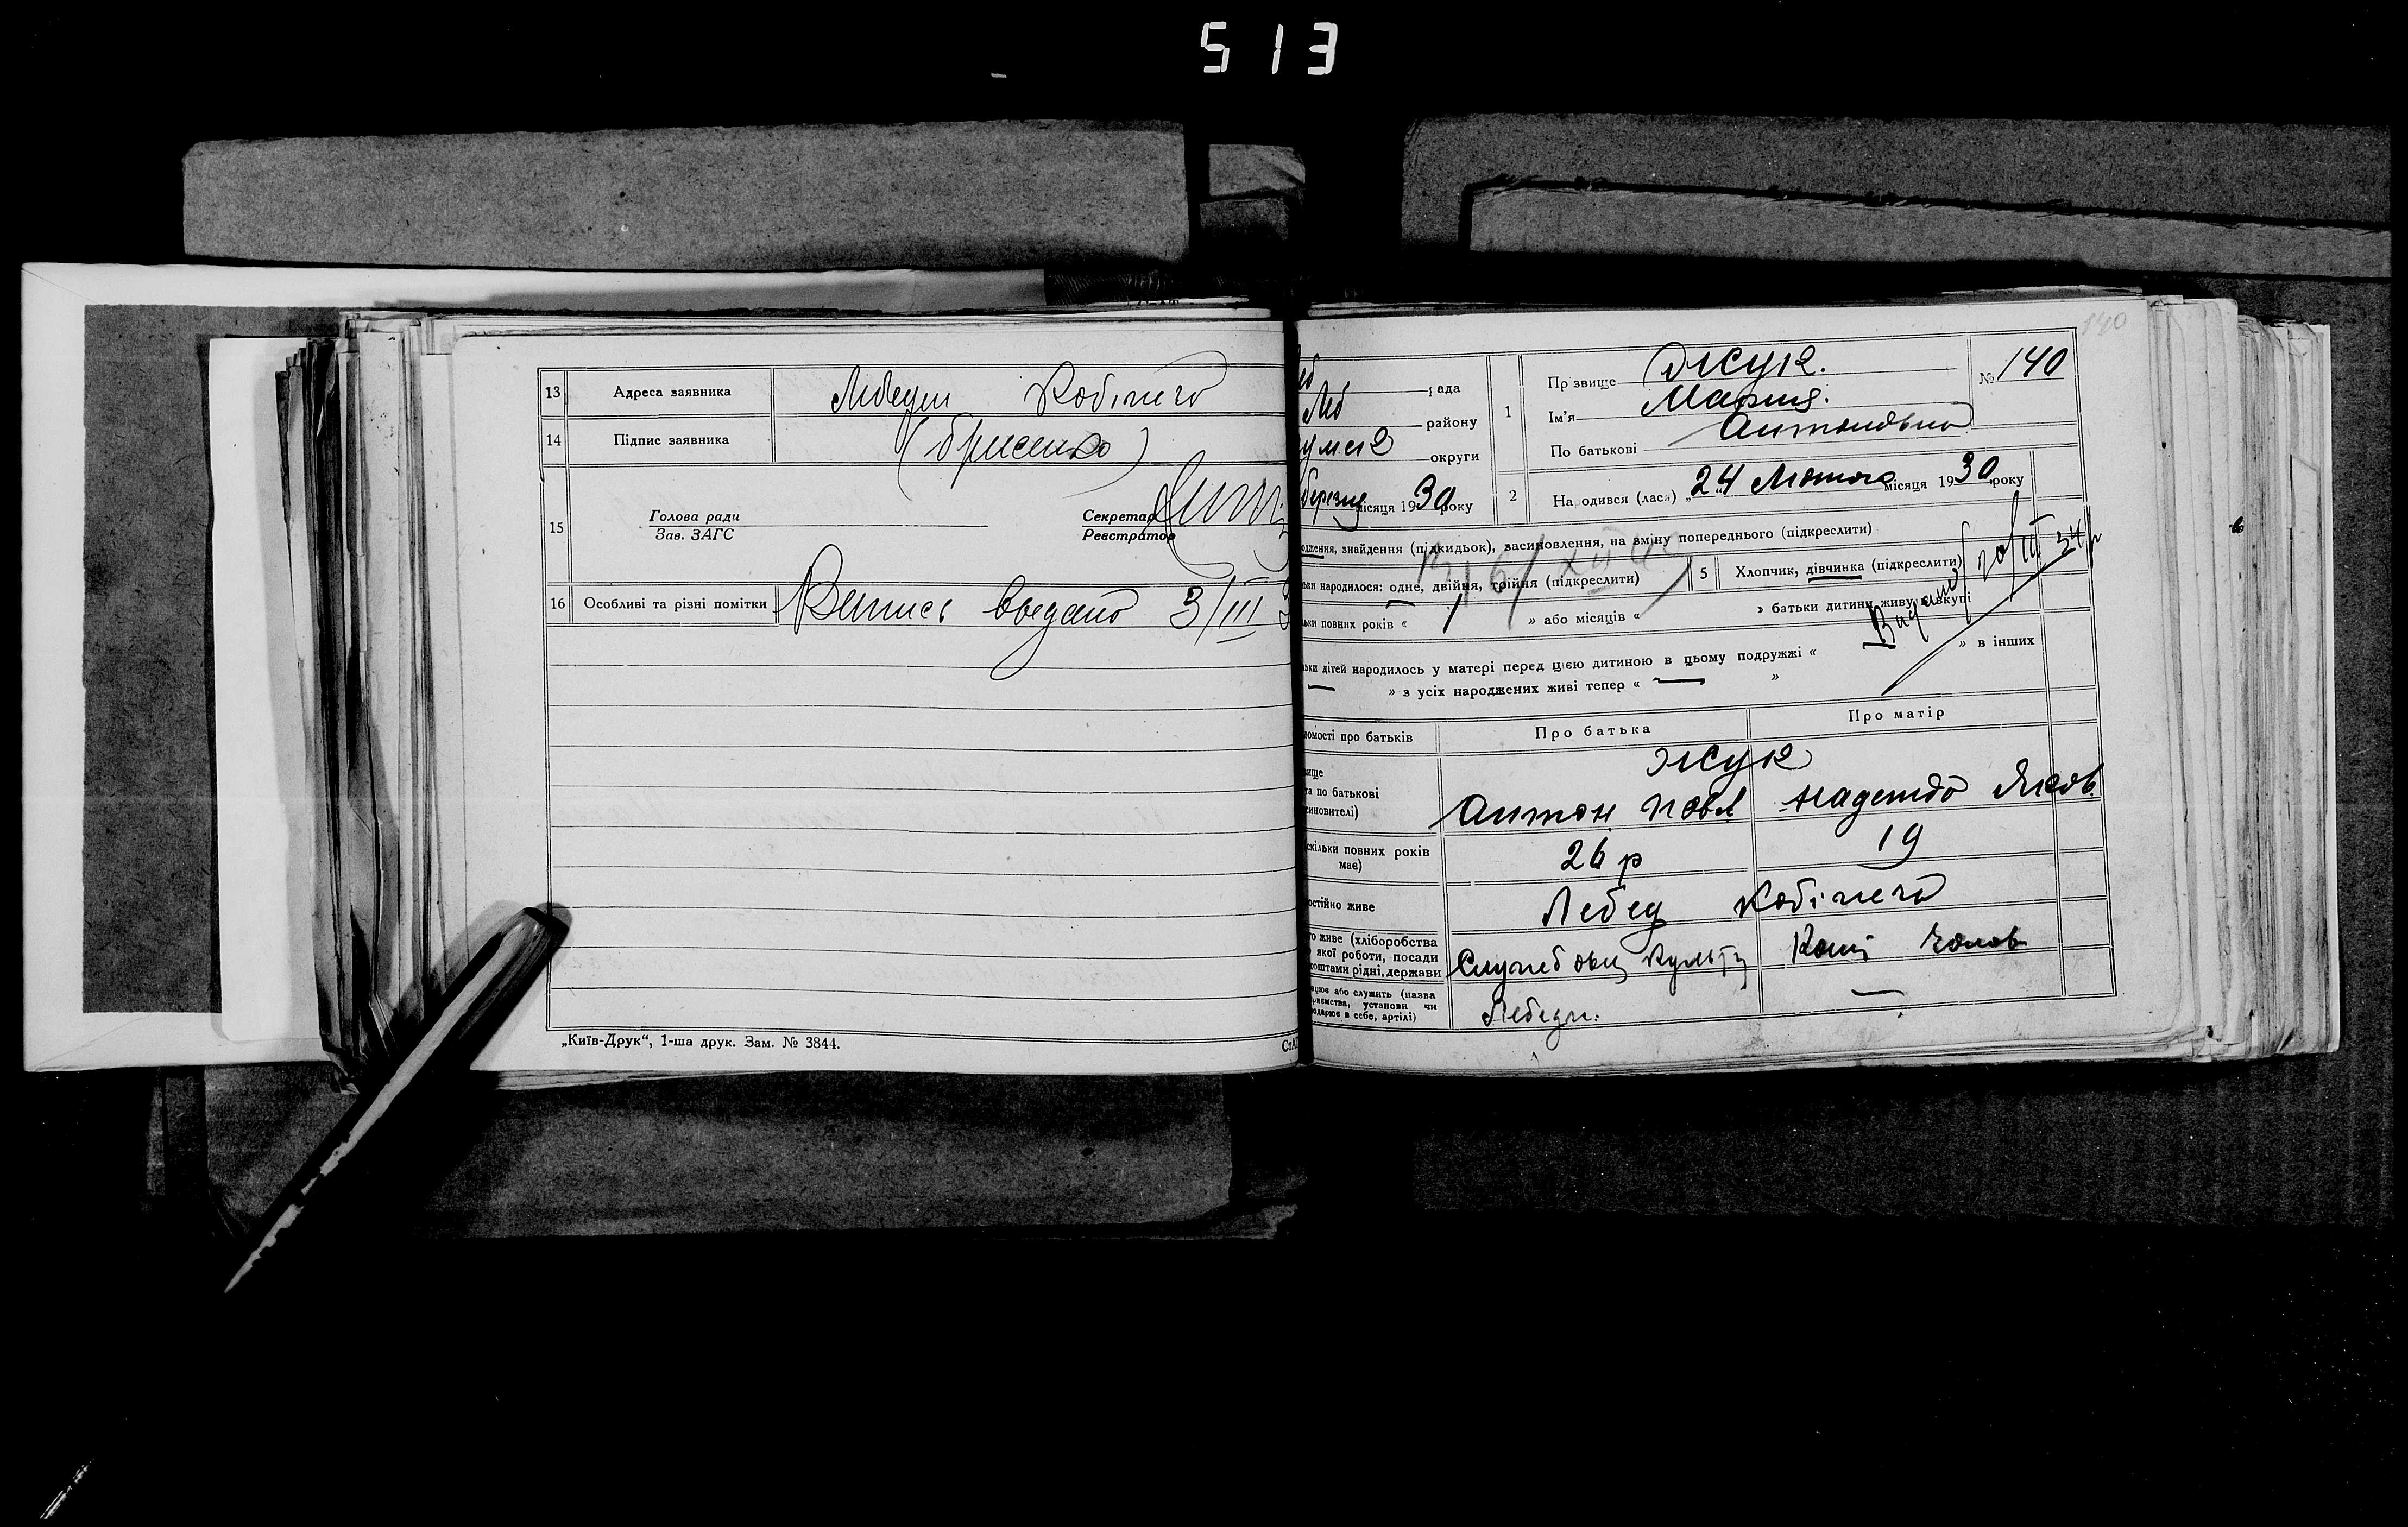 513
13 Адреса заявника Лебедин Кобіжча
14 Підпис заявника (Брисенко)
15 Голова ради
Зав. ЗАГС
Секретар
Реєстратор
16 Особливі та різні помітки Випись видано 3/III 3
„Київ-Друк“, 1-ша друк. Зам. № 3844.
140
Леб рада
Леб району
умск округи
березня місяця 1930 року
1 Прізвище Жук. № 140
Ім'я Мария.
По батькові Антоновна
2 Народився (лась) „24“ Лютого місяця 1930 року
одження, знайдення (підкидьок), засиновлення, на зміну попереднього (підкреслити)
ьки народилося: одне, двійня, трійня (підкреслити) 5 Хлопчик, дівчинка (підкреслити)
ьки повних років « » або місяців « » батьки дитини живуть вкупі
Видано 20/III 34 р
ьки дітей народилось у матері перед цією дитиною в цьому подружжі « » в інших
— » з усіх народжених живі тепер « — »
домості про батьків Про батька Про матір
вище Жук
та по батькові
синовителі) Антон Павл Надежда Яков.
скільки повних років
має) 26 р 19
остійно живе Лебед Кобіжча
го живе (хліборобства
якої роботи, посади
коштами рідні, держави Службовец культу Кошт чолов
ацює або служить (назва
риємства, установи чи
подарює в себе, артілі) Лебедин. —